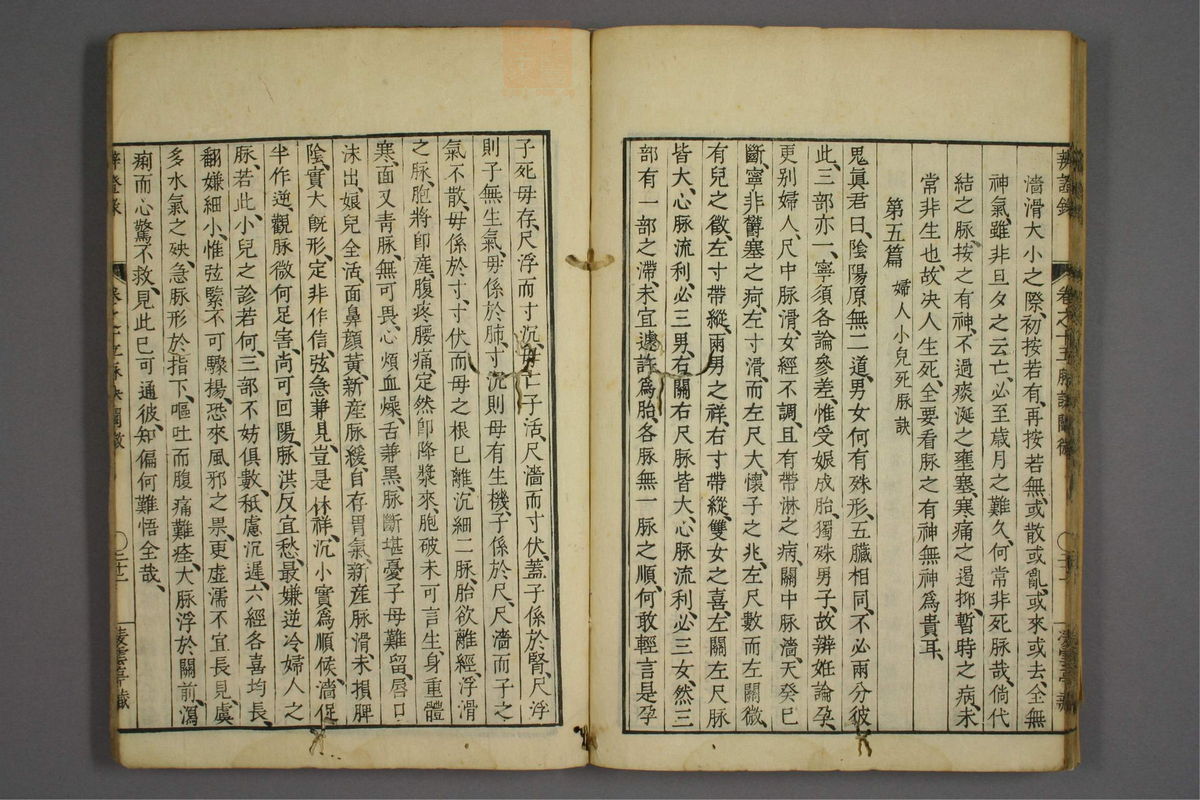 辨證錄
卷之十五脉訣闡微
濇滑大小之際、初按若有、再按若無、或散或亂、或來或去、全無
神氣、雖非旦夕之云亡、必至歲月之難久、何常非死脉哉、倘代
結之脉、按之有神、不過痰涎之壅塞、寒痛之遏抑、暫時之病、未
常非生也、故決人生死、全要看脉之有神無神爲貴耳、
第五篇 婦人小兒死脉訣
鬼眞君曰、陰陽原無二道、男女何有殊形、五臟相同、不必兩分彼
此、三部亦一、寧須各論參差、惟受娠成胎獨殊男子、故辨姙論孕
更别婦人、尺中脉滑、女經不調、且有帶淋之病、關中脉濇、天癸已
斷、寧非欝塞之疴、左寸滑而左尺大、懷子之兆、左尺數而左關微、
有兒之徵、左寸帶縱、兩男之祥、右寸帶縱、雙女之喜、左關左尺脉
皆大、心脉流利、必三男、右關右尺脉皆大、心脉流利、必三女、然三
部有一部之滯、未宜遽許爲胎、各脉無一脉之順、何敢輕言是孕
子死母存、尺浮而寸沉、母亡子活、尺濇而寸伏、蓋子係於腎、尺浮
則子無生氣、母係於肺、寸沉則母有生機、子係於尺、尺濇而子之
氣不散、母係於寸、寸伏而母之根已離、沉細二脉、胎欲離經、浮滑
之脉、胞將卽産、腹疼腰痛、定然卽降、漿來胞破、未可言生、身重體
寒、面又青、脉無可畏、心煩血燥、舌兼黑、脉斷堪憂、子母難留、唇口
沫出、娘兒全活、面鼻顏黃、新産脉緩、自存胃氣、新産脉滑、未損脾
陰、實大旣形、定非作信、弦急兼見、豈是休祥、沉小實爲順候、濇促
半作逆觀、脉微何足害、尚可回陽、脉洪反宜愁、最嫌逆冷、婦人之
脉、若此、小兒之診若何、三部不妨俱數、秪慮沉遲、六經各喜均長、
翻嫌細小、惟弦緊不可驟揚、恐來風邪之祟、更虛濡不宜長見、虞
多水氣之殃、急脉形於指下、嘔吐而腹痛難痊、大脉浮於關前、瀉
痢而心驚不救、見此已可通彼、知偏何難悟全哉、
辨證錄